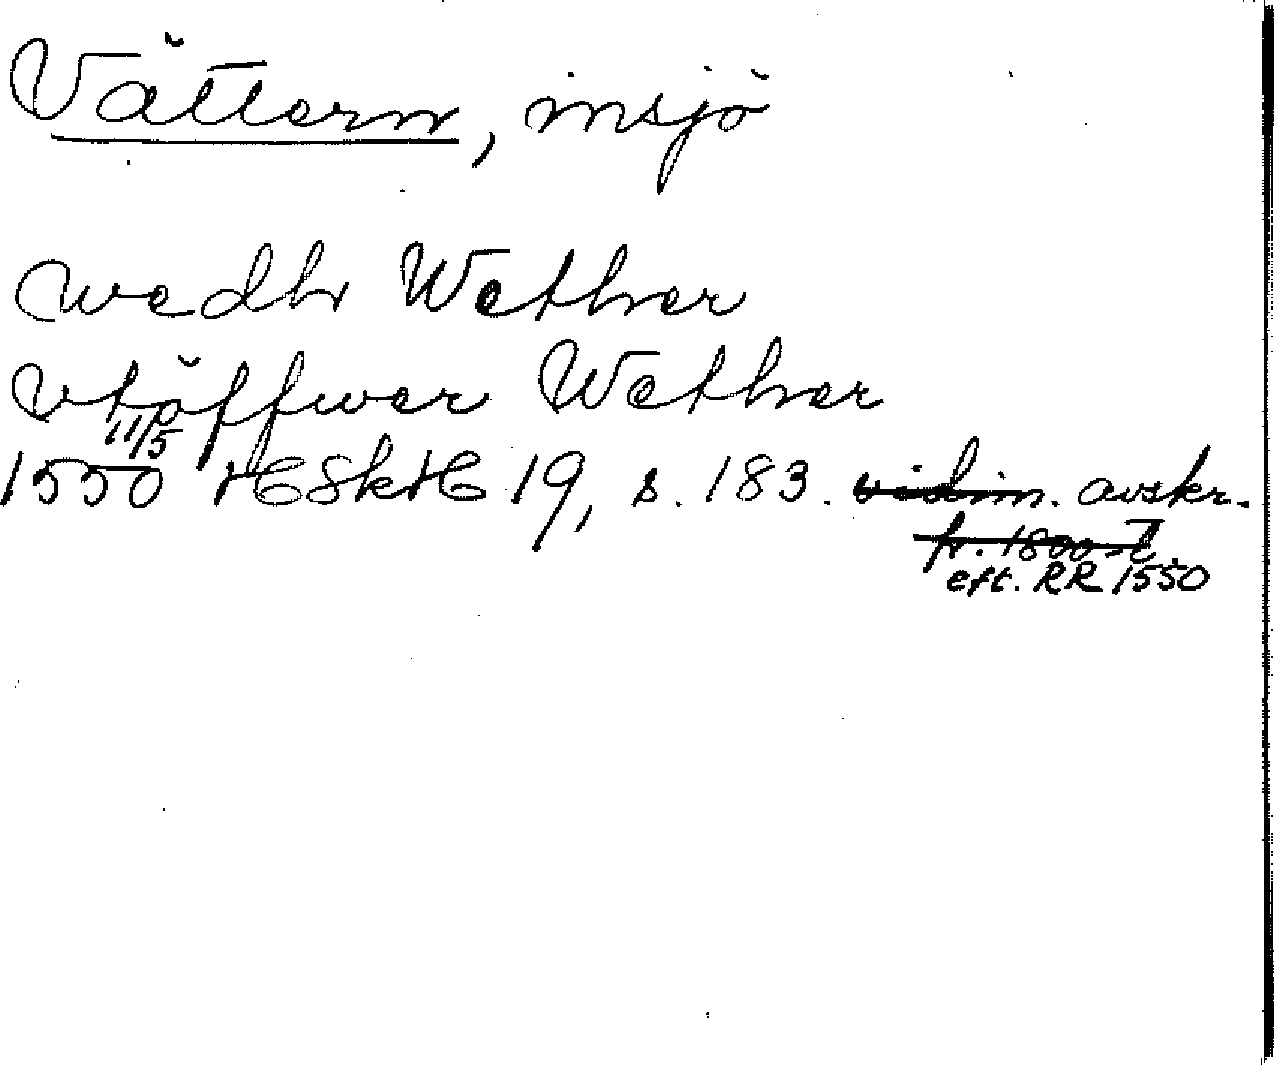 Vättern, insjö
wedh Wether
vtöffwer Wether
11/5
1550 HSkH 19, s. 183. vidim. avskr.
fr. 1800-t.
eft. RR 1550